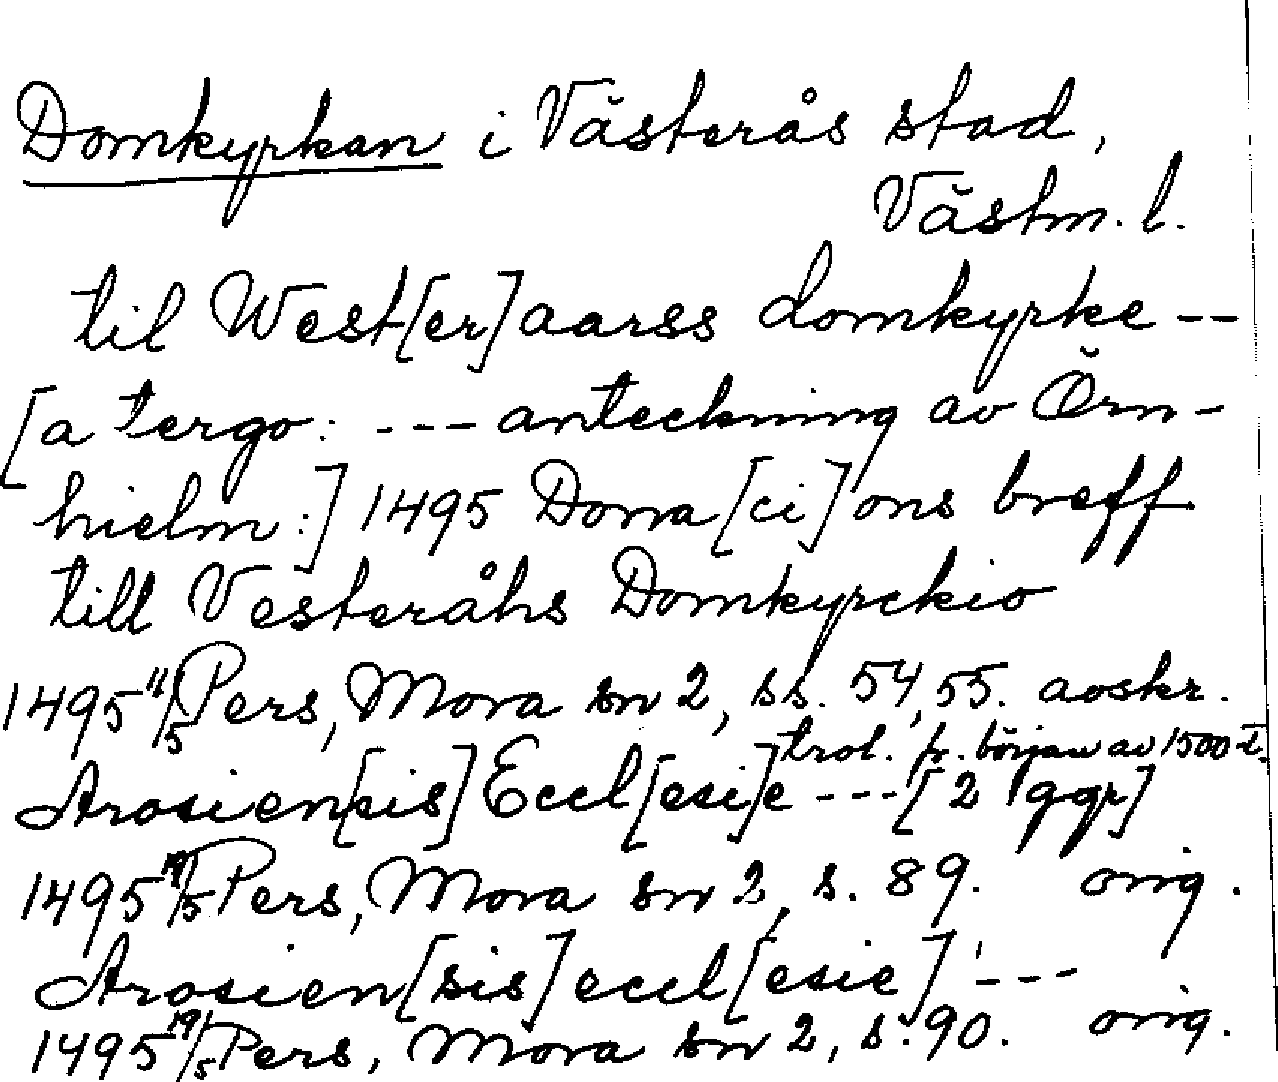 Domkyrkan i Västerås stad,
Västm. l.
til West[er]aarss domkyrke --
[a tergo: --- anteckning av Örn-
hielm:] 1495 Dona[ci]ons breff
till Vesteråhs Domkyrckio
1495 11/5 Pers, Mora sn 2, ss. 54, 55. avskr.
trol. fr. början av 1500-t.
Arosien[sis] Eccl[esi]e --- [2 ggr]
1495 19/5 Pers, Mora sn 2, s. 89. orig.
Arosien[sis] eccl[esie] ---
1495 19/5 Pers, Mora sn 2, s. 90. orig.